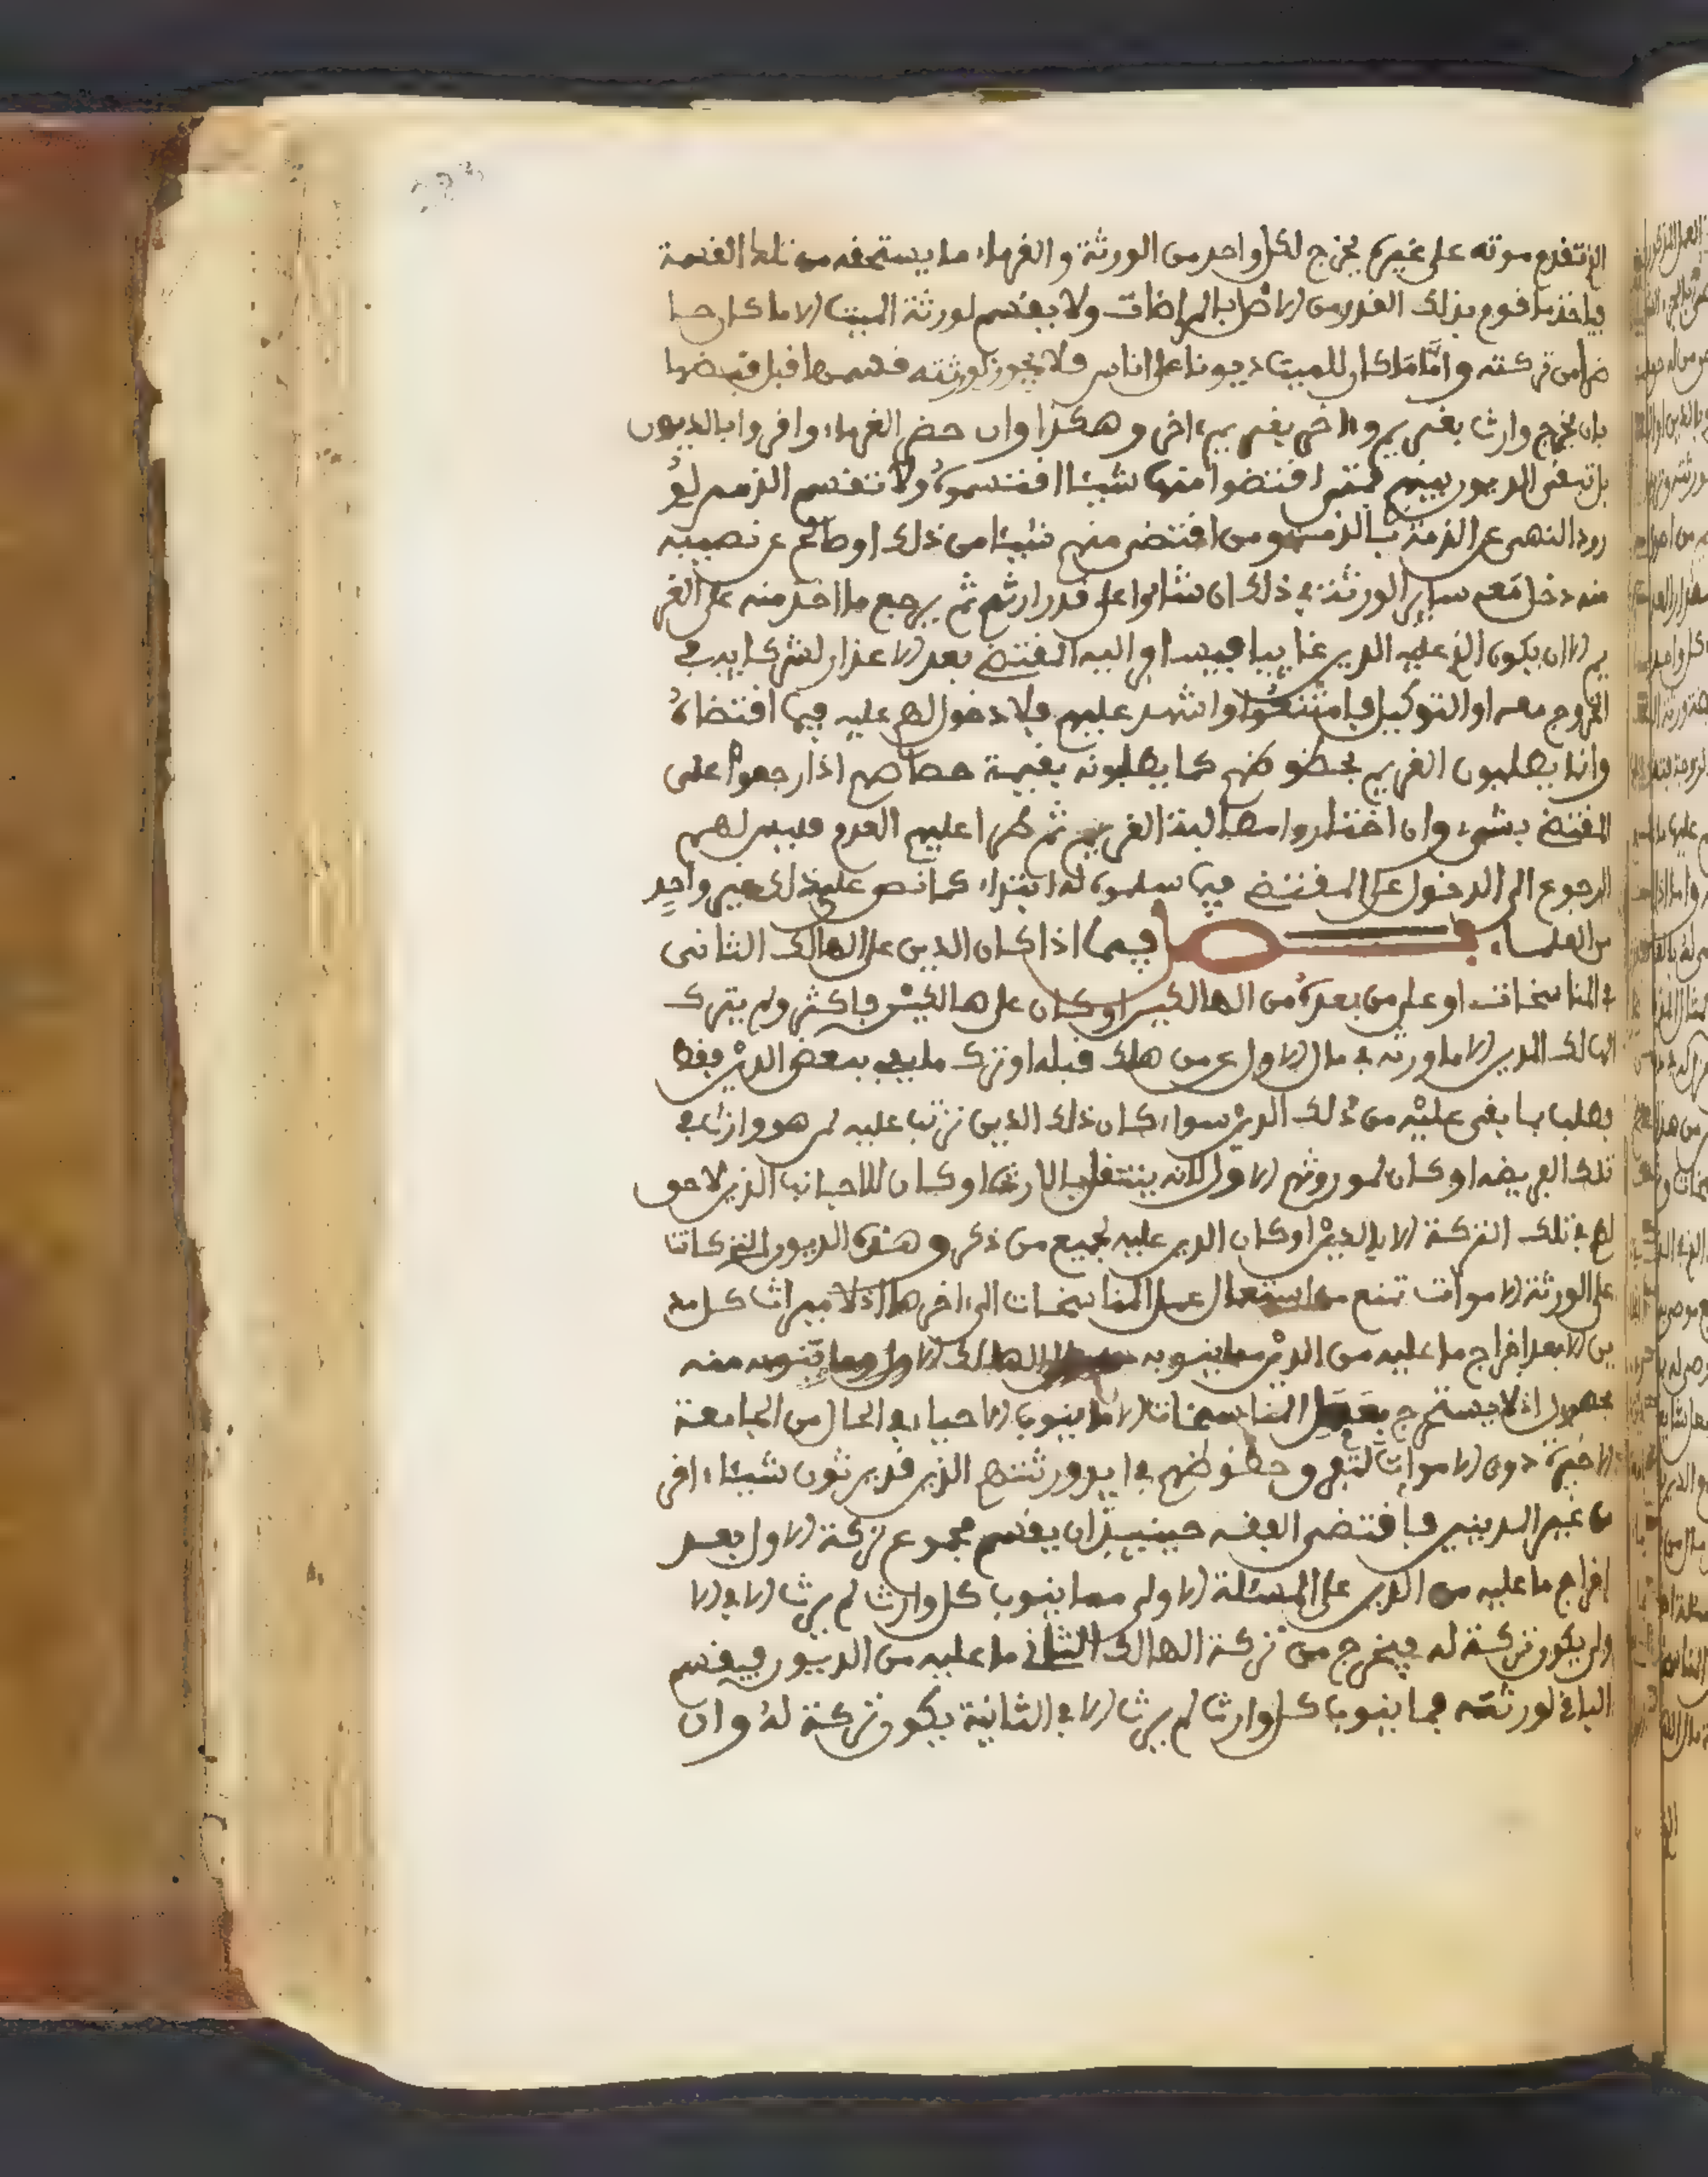 الذي تقدم موته على غيره يخرج لكل واحد من الورثة والغرماء ما يستحقه من تلك القسمة
فياخذ ما قوم بذلك القدر من الاصل بالمراضات ولا يقسم لورثة الميت الا ما كان حا
ضرا من تركته واما ما كان للميت ديونا على الناس فلا يجوز لورثته قسمها قبل قبضها
بان يخرج وارث بغريم واخر بغريم اخر وهكذا وان حضر الغرماء واقروا بالديون
بل تبقى الديون بينهم فمتى اقتضوا منها شيئا اقتسموه ولا تقسم الذمم لو
رود النهي عن الذمة بالذمة ومن اقتضى منهم شيئا من ذلك او صالح عن نصيبه
منه دخل معه ساير الورثة في ذلك ان شاءوا على قدر ارثهم ثم يرجع ما اخذ منه على الغر
يم الا ان يكون الذي عليه الدين غايبا فيسافر اليه المقتضي بعد الاعذار لشركايه في
الخروج معه او التوكيل فامتنعوا واشهد عليهم فلا دخول لهم عليه فيما اقتضاه
وانما يطلبون الغريم بحظوظهم كما يطلبونه بقيمة حصاصهم اذا رجعوا على
المقتضي بشيء وان اختاروا مطالبة الغريم ثم طرا عليهم العدم فليس لهم
الرجوع الى الدخول على المقتضي فيما سلموه له ابتداء كما نص على ذلك غير واحد
من العلماء فصل فيما اذا كان الدين على الهالك الثاني
في المناسخات او على من بعده من الهالكين او كان على هالكين فاكثر ولم يترك
الهالك المدين الا ما ورثه في مال الاول عن من هلك قبله او ترك ما يفي ببعض الدين فقط
بطلب بما بقي عليه من ذلك الدين سواء كان ذلك الدين ترتب عليه لمن هو وارث في
تلك الفريضة او كان لموروثهم الاول لانه ينتقل بالارث او كان للاجانب الذين لا حق
لهم في تلك التركة الا بالدين او كان الدين عليه لجميع من ذكر وهذه الديون التي كانت
على الورثة الاموات تمنع من استعمال عمل المناسخات الى اخرها اذ لا ميراث كل مد
ين الا بعد اخراج ما عليه من الدين مما ينوبه الهالك الاول وما ينوبه منه
مجهول اذ لا يستخرج بعمل المناسخات الا ما ينوب الاحياء في الحال من الجامعة
الاخيرة دون الاموات وحظوظهم في ايدي ورثتهم الذين قد يرثون شيئا اخر
من غير المدينين فاقتضى الفقه حينيذ ان يقسم مجموع تركة الاول بعد
اخراج ما عليه من الدين على المسئلة الاولى مما ينوب كل وارث لم يرث الا في الا
ولى يكون تركة له فيخرج من تركة الهالك الثاني ما عليه من الديون فيقسم
الباقي لورثته فما ينوب كل وارث لم يرث الا في الثانية يكون تركة له وان